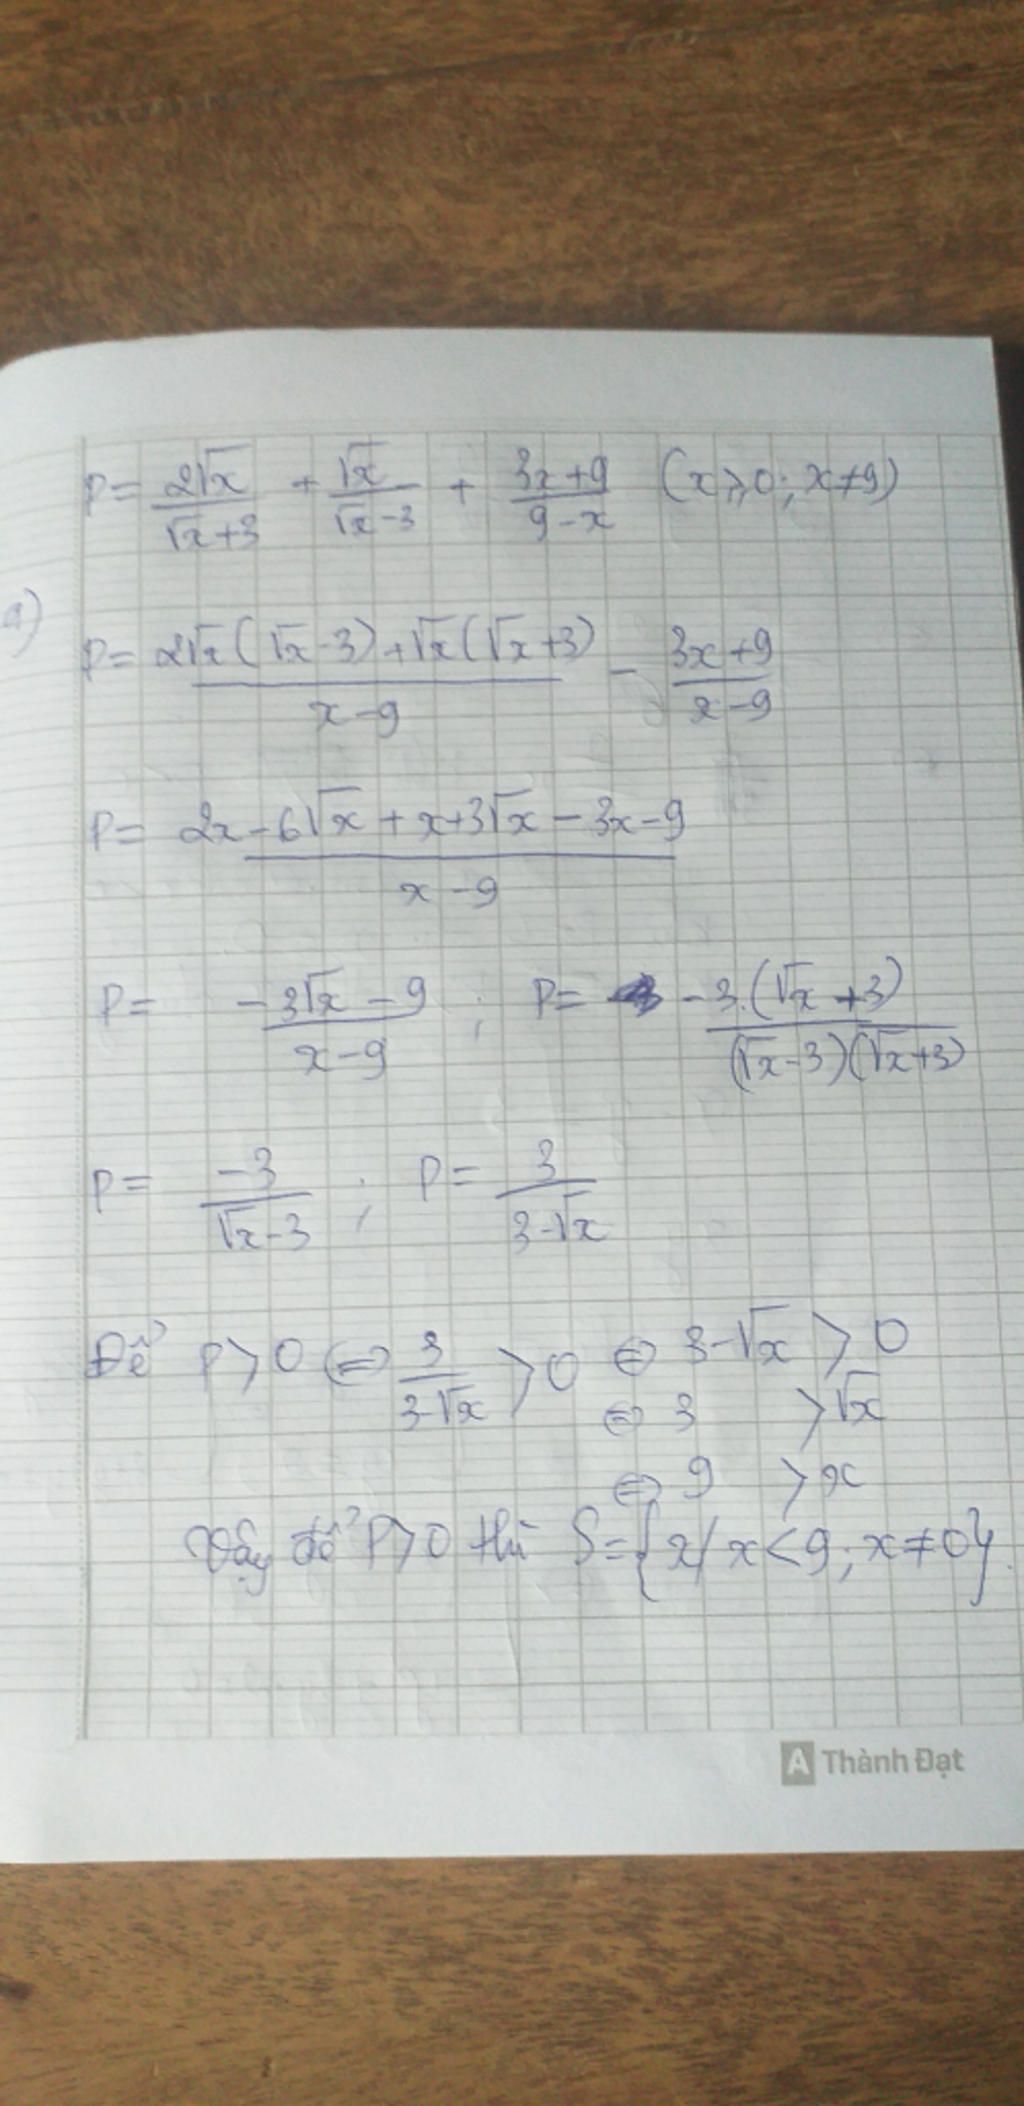 P = 2√x/(√x+3) + √x/(√x-3) + (3x+9)/(9-x) (x ≥ 0; x ≠ 9)
a)
P = (2√x(√x-3)+√x(√x+3))/(x-9) - (3x+9)/(x-9)
P = (2x-6√x+x+3√x-3x-9)/(x-9)
P = (-3√x-9)/(x-9) ; P = -3.(√x+3)/((√x-3)(√x+3))
P = -3/(√x-3) ; P = 3/(3-√x)
Để P > 0 ⇔ 3/(3-√x) > 0 ⇔ 3-√x > 0
⇔ 3 > √x
⇔ 9 > x
Vậy để P > 0 thì S = {x/ x < 9; x ≠ 0}.
A Thành Đạt